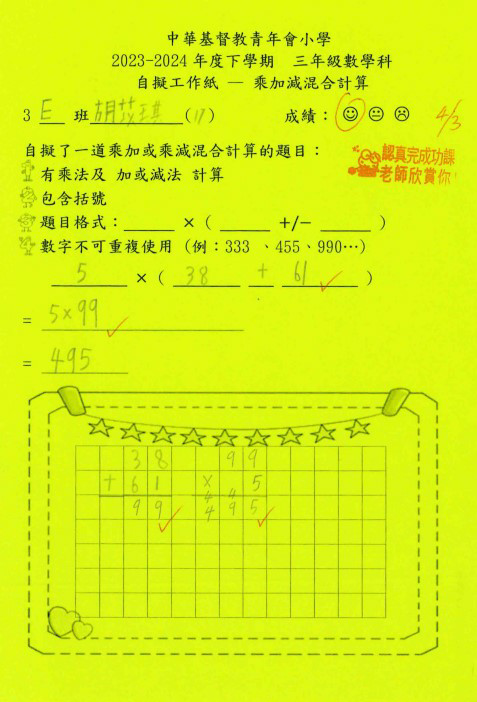 中華基督教青年會小學
2023-2024 年度下學期 三年級數學科
自擬工作紙 — 乘加減混合計算
3 E 班 胡苡琪 (17) 成績：
4/3
自擬了一道乘加或乘減混合計算的題目：
認真完成功課
老師欣賞你!
有乘法及 加或減法 計算
包含括號
題目格式：______ × ( ______ +/- ______ )
數字不可重複使用 (例：333 、455、990…)
5 × ( 38 + 61 )
= 5×99
= 495
38 99
+ 61 × 5
4 4
99 495